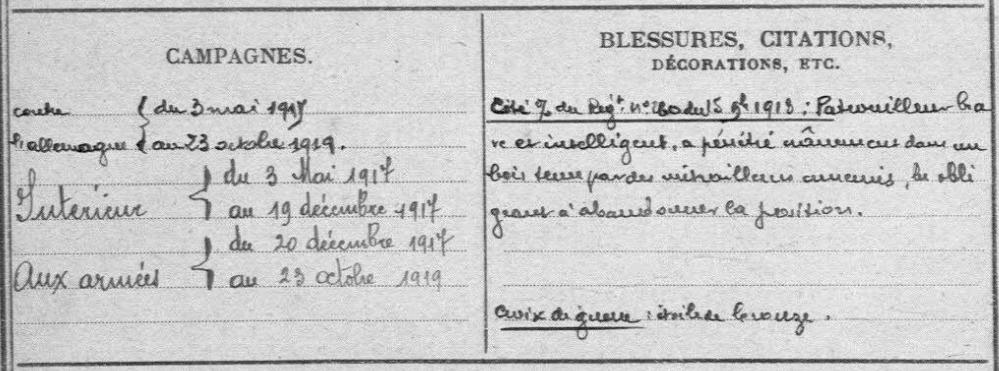 CAMPAGNES.
contre { du 3 mai 1917
l'allemagne { au 23 octobre 1919.
Intérieur } du 3 Mai 1917
au 19 décembre 1917
Aux armées } du 20 décembre 1917
au 23 octobre 1919
BLESSURES, CITATIONS,
DÉCORATIONS, ETC.
Cité % du Régt. n° du 15 9b 1918 : Patrouilleur bra
ve et intelligent, a pénétré dans un
bois tenu par des mitrailleurs ennemis, les obli
geant à abandonner la position.
Croix de guerre : étoile de bronze.